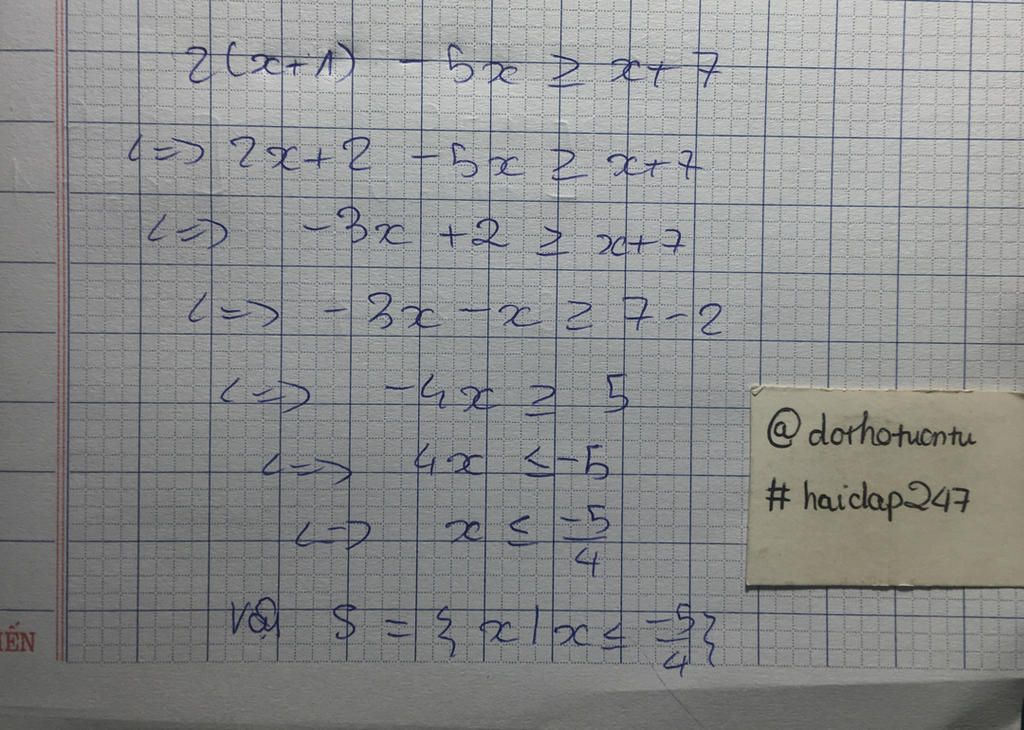 2(x+1) - 5x ≥ x+7
<=> 2x+2 - 5x ≥ x+7
<=> -3x +2 ≥ x+7
<=> -3x - x ≥ 7-2
<=> -4x ≥ 5
<=> 4x ≤ -5
<=> x ≤ -5/4
Vậy S = { x | x ≤ -5/4 }
@dorhotuontu
#haidap247
ẾN